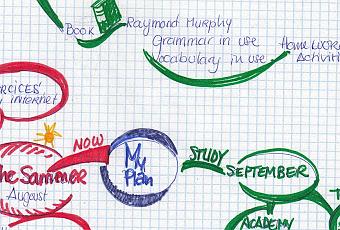 BOOK
Raymond Murphy
Grammar in use
Vocabulary in use
Home WORK
Activiti
ERCICES'
INTERNET
NOW
The Sammer
August
My
Plan
STUDY
SEPTEMBER
ACADEMY
T